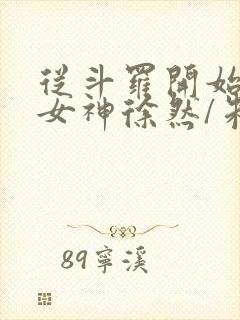 從斗羅開始
女神徐然/朱
89寧溪